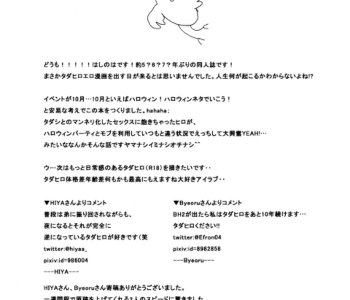 どうも！！！！！はしのはです！約5?6?7?7年ぶりの同人誌です！
まさかタダヒロエロ漫画を出す日が来るとは思いませんでした。人生何が起こるかわからないよね!?
イベントが10月…10月といえばハロウィン！ハロウィンネタでいこう！
と安易な考えでこの本をつくりました。hehaha;
タダシとのマンネリ化したセックスに飽きちゃったヒロが、
ハロウィンパーティとモブを利用していつもと違う状況でえっちして大興奮YEAH!…
みたいななんかそんな話ですヤマナシイミナシオチナシ^^
ウ…次はもっと日常感のあるタダヒロ(R18)を描きたいです‥
タダヒロ体格差年齢差何もかも最高にもえますね大好きアイラブ‥
▼HIYAさんよりコメント
普段は弟に振り回されながらも、
夜になるとそれが完全に
逆になっているタダヒロが好きです(笑
twitter:@hiyas_
pixiv:id=986004
---HIYA---
▼Byeoruさんよりコメント
BH2が出たら私はタダヒロをあと10年続けます…
タダヒロください!!
twitter:@Efron04
pixiv:id=8962856
---Byeoru---
HIYAさん、Byeoruさん寄稿ありがとうございました。